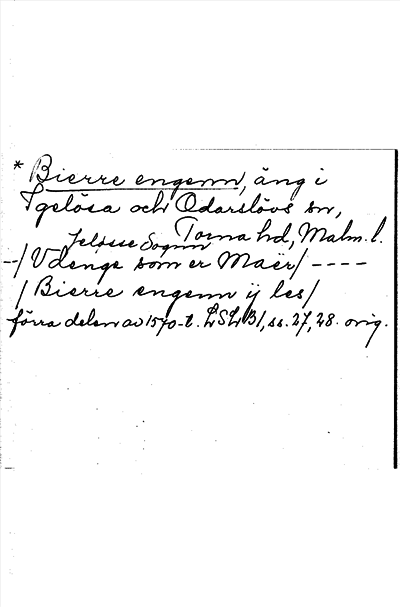 * Bierre engenn, äng i
Igelösa och Odarslövs sn,
Torna hd, Malm. l.
Jelösse Sognn
-/ Vdenge som er Maër/ ----
/ Bierre engenn ij les/
förra delen av 1570-t. LSLB1, ss. 27, 28. orig.